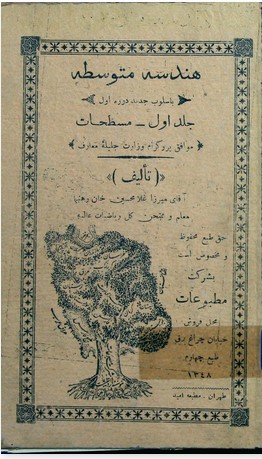 هندسه متوسطه
باسلوب جدید دوره اول
جلد اول – مسطحات
موافق پروگرام وزارت جلیلهٔ معارف
«(تألیف)»
آقای میرزا غلامحسین خان رهنما
معلم و ممتحن کل ریاضیات عالیه
حق طبع محفوظ
و مخصوص است
بشرکت
مطبوعات
محل فروش
خیابان چراغ برق
طبع چهارم
۱۳۴۸
طهران – مطبعه امید